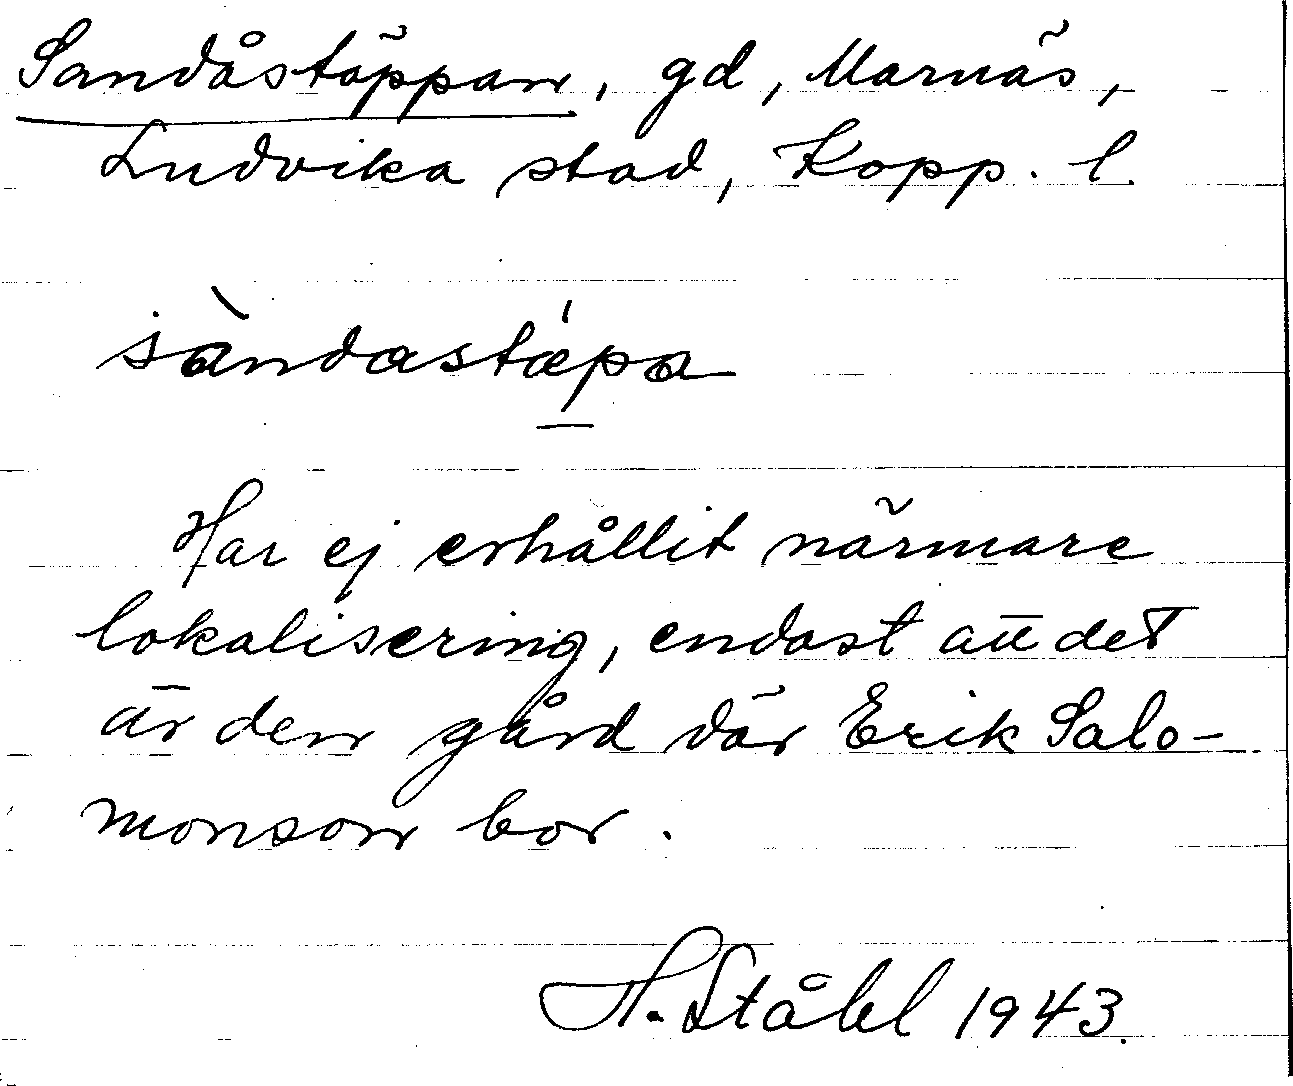 Sandåstäppan, gd, Marnäs,
Ludvika stad, Kopp. l.
sàndastǽpa
Har ej erhållit närmare
lokalisering, endast att det
är den gård där Erik Salo-
monson bor.
H. Ståhl 1943.